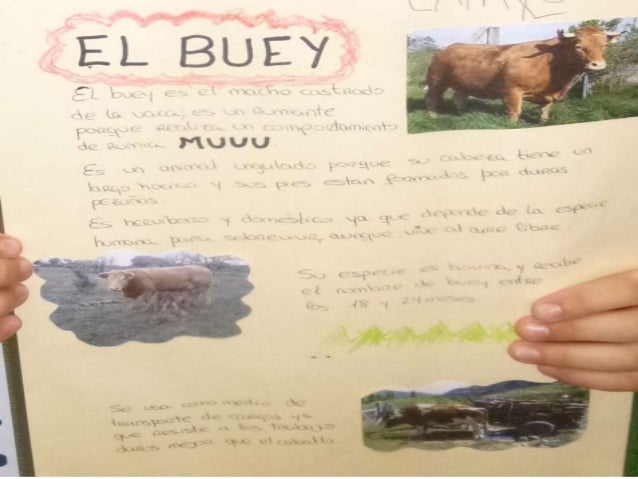 EL BUEY
El buey es el macho castrado
de la vaca, es un rumiante
porque realiza un comportamiento
de rumia MUUU
Es un animal ungulado porque su cabeza tiene un
largo hocico y sus pies estan formados por duras
pezuñas.
Es herviboro y doméstico ya que depende de la especie
humana para sobrevivir, aunque vive al aire libre.
Su especie es bovina, y recibe
el nombre de buey entre
los 18 y 24 meses
Se usa como medio de
transporte de cargas ya
que resiste a los trabajos
duros mejor que el caballo.